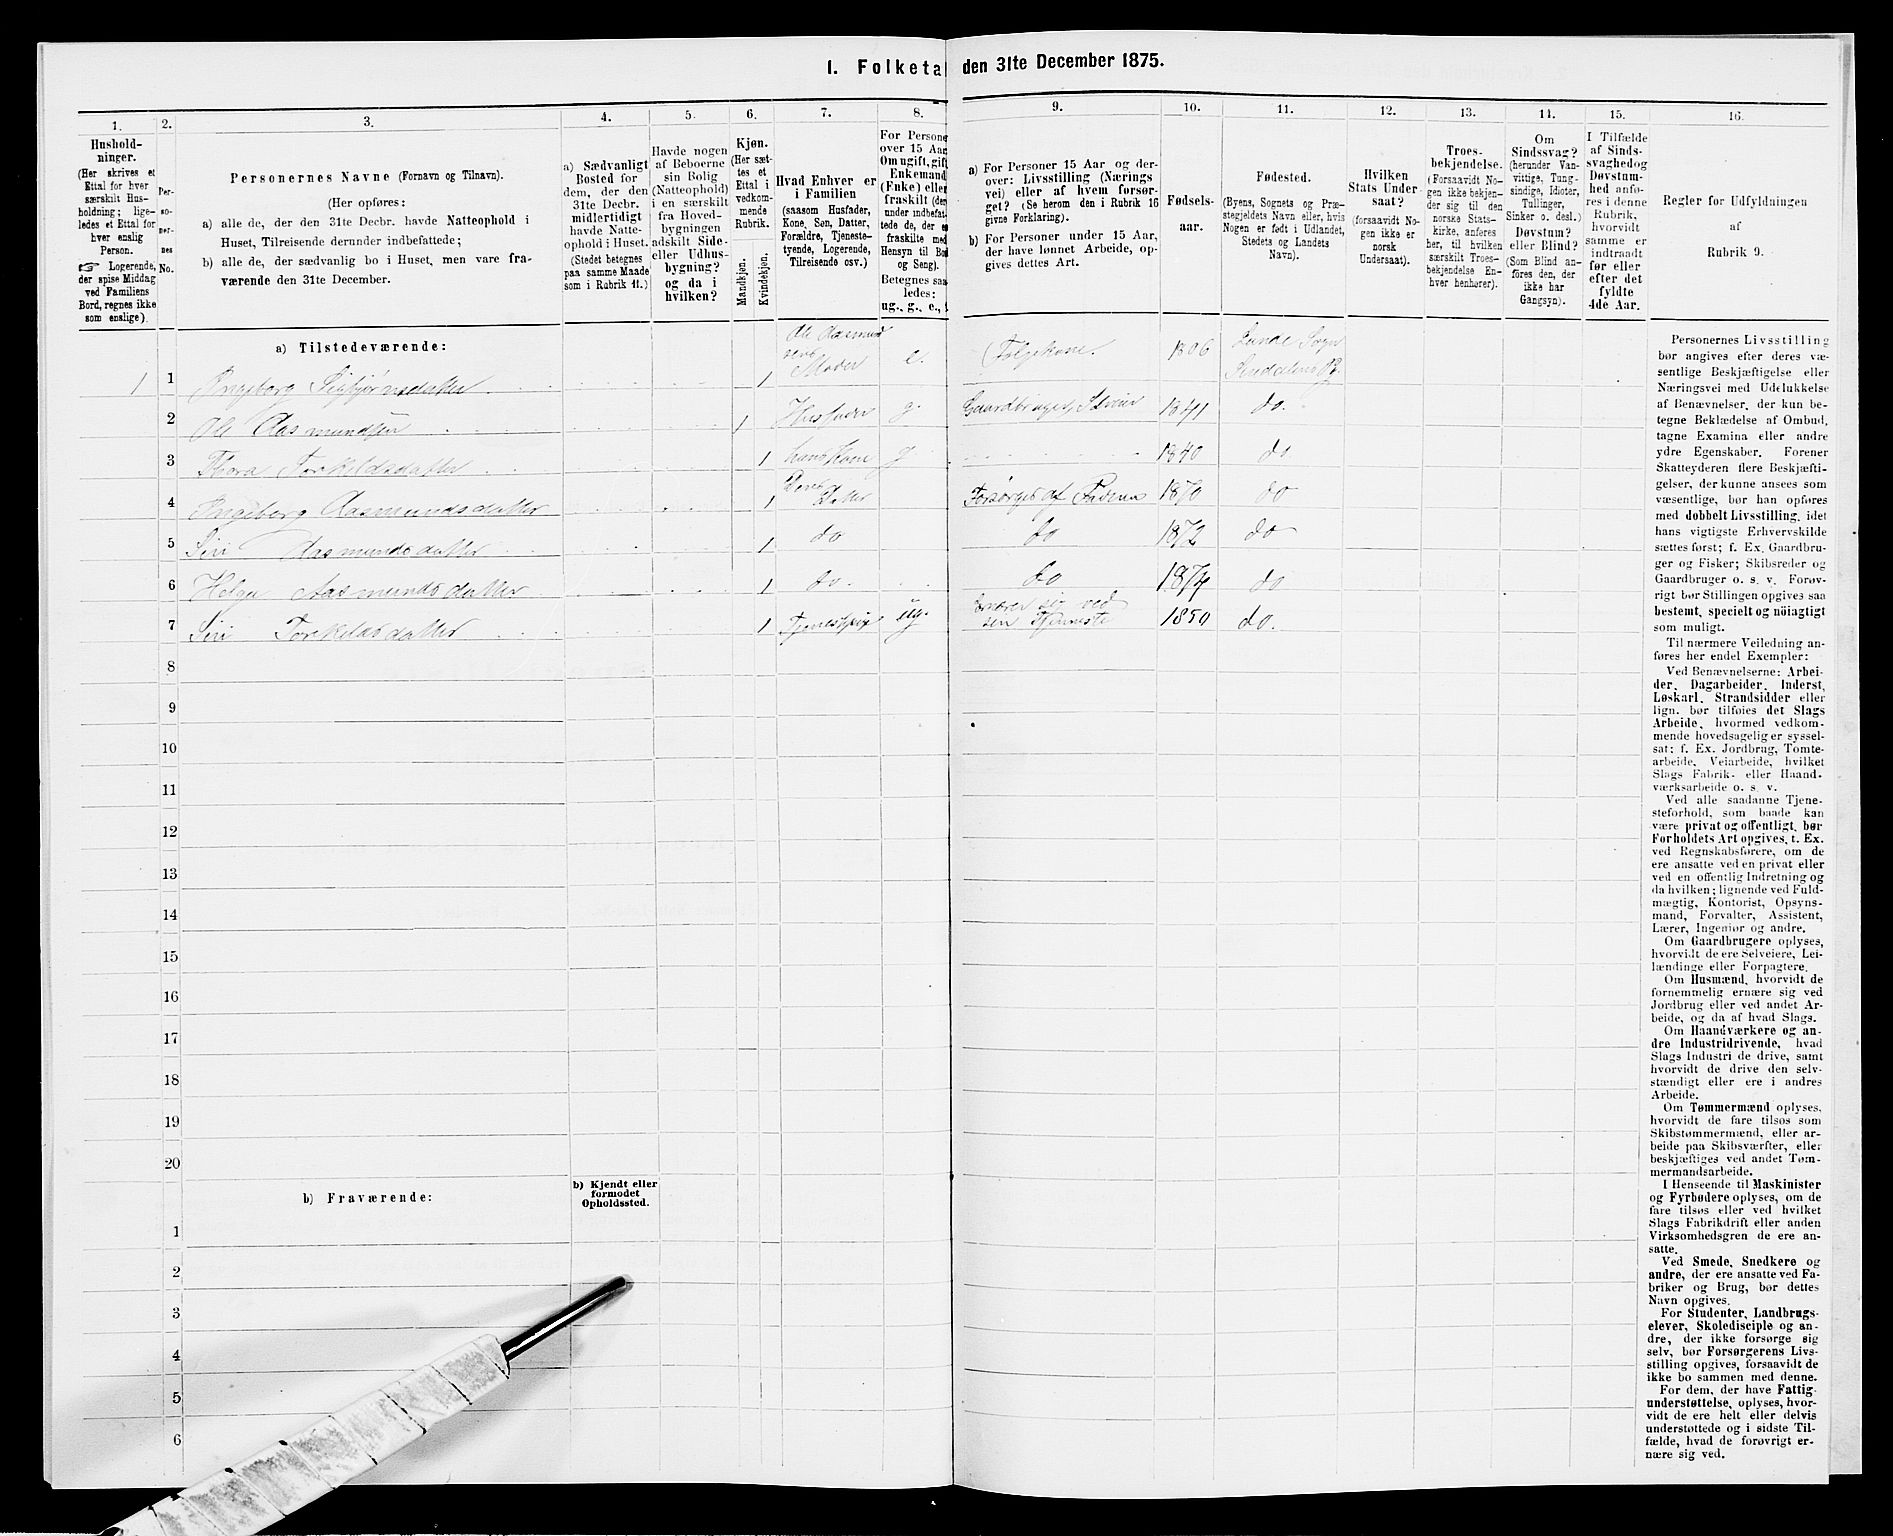 I. Folketal den 31te December 1875.
1.
Hushold-
ninger.
(Her skrives et
Ettal for hver
særskilt Hus-
holdning; lige-
ledes et Ettal for
hver enslig
Person.
☞ Logerende,
der spise Middag
ved Familiens
Bord, regnes ikke
som enslige).
2.
Per-
so-
ner-
nes
No.
3.
Personernes Navne (Fornavn og Tilnavn).
(Her opføres:
a) alle de, der den 31te Decbr. havde Natteophold i
Huset, Tilreisende derunder indbefattede;
b) alle de, der sædvanlig bo i Huset, men vare fra-
værende den 31te December.
4.
a) Sædvanligt
Bosted for
dem, der den
31te Decbr.
midlertidigt
havde Natte-
ophold i Huset.
(Stedet betegnes
paa samme Maade
som i Rubrik 11.)
5.
Havde nogen
af Beboerne
sin Bolig
(Natteophold)
i en særskilt
fra Hoved-
bygningen
adskilt Side-
eller Udhus-
bygning?
og da i
hvilken?
6.
Kjøn.
(Her sæt-
tes et
Ettal i
vedkom-
mende
Rubrik.
Mandkjøn.
Kvindekjøn.
7.
Hvad Enhver er
i Familien
(saasom Husfader,
Kone, Søn, Datter,
Forældre, Tjeneste-
tyende, Logerende,
Tilreisende osv.)
8.
For Persone
over 15 Aar
Om ugift, gift
Enkemand
(Enke) eller
fraskilt (der
under indbefat
tede de, der e
fraskilte med
Hensyn til Bo
og Seng).
Betegnes saa
ledes:
ug., g., e.,
9.
a) For Personer 15 Aar og der-
over: Livsstilling (Nærings
vei) eller af hvem forsør-
get? (Se herom den i Rubrik 16
givne Forklaring).
b) For Personer under 15 Aar,
der have lønnet Arbeide, op-
gives dettes Art.
10.
Fødsels-
aar.
11.
Fødested.
(Byens, Sognets og Præ-
stegjeldets Navn eller, hvis
Nogen er født i Udlandet,
Stedets og Landets
Navn).
12.
Hvilken
Stats Under-
saat?
(forsaavidt No-
gen ikke er
norsk
Undersaat).
13.
Troes-
bekjendelse.
(Forsaavidt No-
gen ikke bekjen-
der sig til den
norske Stats-
kirke, anføres
her, til hvilken
særskilt Troes-
bekjendelse En-
hver henhører).
14.
Om
Sindssvag?
(herunder Van-
vittige, Tung-
sindige, Idioter,
Tullinger,
Sinker o. desl.)
Døvstum?
eller Blind?
(Som Blind an-
føres den, der
ikke har
Gangsyn).
15.
I Tilfælde
af Sinds-
svaghedog
Døvstum-
hed anfø-
res i denne
Rubrik,
hvorvidt
samme er
indtraadt
før eller
efter det
fyldte
4de Aar.
16.
Regler for Udfyldningen
af
Rubrik 9.
a) Tilstedeværende:
1 1 Ingeborg Sigbjørnsdatter 1 Ole Aasmund sens Moder e. Følgekone. 1806 Lunde Sogn
2 Ole Aasmundsen 1 Husfader g. Gaardbruger, Selveier 1841 do.
3 Thora Torkildsdatter 1 hans Kone g 1840 do
4 Ingeborg Aasmundsdatter 1 Deres Datter Forsørges af Faderen 1870 do
5 Siri Aasmundsdatter 1 do do 1872 do
6 Helga Aasmundsdatter 1 do. do 1874 do
7 Siri Torkelsdatter 1 Tjenestepige ug. Ernærer sig ved sin Tjeneste 1850 do.
8
9
10
11
12
13
14
15
16
17
18
19
20
b) Fraværende:
b) Kjendt eller
formodet
Opholdssted.
1
2
3
4
5
6
Personernes Livsstilling
bør angives efter deres væ-
sentlige Beskjæftigelse eller
Næringsvei med Udelukkelse
af Benævnelser, der kun be-
tegne Beklædelse af Ombud,
tagne Examina eller andre
ydre Egenskaber. Forener
Skatteyderen flere Beskjæfti-
gelser, der kunne ansees som
væsentlige, bør han opføres
med dobbelt Livsstilling, idet
hans vigtigste Erhvervskilde
sættes først; f. Ex. Gaardbru-
ger og Fisker; Skibsreder og
Gaardbruger o. s. v. Forøv-
rigt bør Stillingen opgives saa
bestemt, specielt og nöiagtigt
som muligt.
Til nærmere Veiledning an-
føres her endel Exempler:
Ved Benævnelserne: Arbei-
der, Dagarbeider, Inderst,
Løskarl, Strandsidder eller
lign. bør tilføies det Slags
Arbeide, hvormed vedkom-
mende hovedsagelig er syssel-
sat; f. Ex. Jordbrug, Tomte-
arbeide, Veiarbeide, hvilket
Slags Fabrik- eller Haand-
værksarbeide o. s. v.
Ved alle saadanne Tjene-
steforhold, som baade kan
være privat og offentligt, bør
Forholdets Art opgives, t. Ex.
ved Regnskabsførere, om de
ere ansatte ved en privat eller
ved en offentlig Indretning og
da hvilken; lignende ved Fuld-
mægtig, Kontorist, Opsyns-
mand, Forvalter, Assistent,
Lærer, Ingeniør og andre.
Om Gaardbrugere oplyses,
hvorvidt de ere Selveiere, Lei-
lændinge eller Forpagtere.
Om Husmænd, hvorvidt de
fornemmelig ernære sig ved
Jordbrug eller ved andet Ar-
beide, og da af hvad Slags.
Om Haandværkere og an-
dre Industridrivende, hvad
Slags Industri de drive, samt
hvorvidt de drive den selv-
stændigt eller ere i andres
Arbeide.
Om Tømmermænd oplyses,
hvorvidt de fare tilsøs som
Skibstømmermænd, eller ar-
beide paa Skibsværfter, eller
beskjæftiges ved andet Tøm-
mermandsarbeide.
I Henseende til Maskinister
og Fyrbødere oplyses, om de
fare tilsøs eller ved hvilket
Slags Fabrikdrift eller anden
Virksomhedsgren de ere an-
satte.
Ved Smede, Snedkere og
andre, der ere ansatte ved Fa-
briker og Brug, bør dettes
Navn opgives.
For Studenter, Landbrugs-
elever, Skoledisciple og an-
dre, der ikke forsørge sig
selv, bør Forsørgerens Livs-
stilling opgives, forsaavidt de
ikke bo sammen med denne.
For dem, der have Fattig-
understøttelse, oplyses, hvor-
vidt de ere helt eller delvis
understøttede og i sidste Til-
fælde, hvad de forøvrigt er-
nære sig ved.